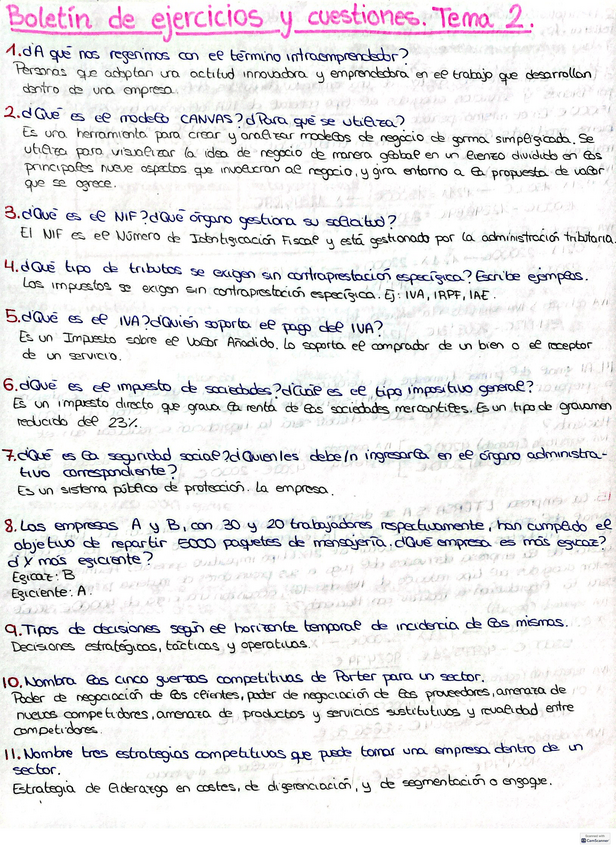 Boletín de ejercicios y cuestiones. Tema 2.
1. ¿A qué nos referimos con el término intraemprendedor?
Personas que adoptan una actitud innovadora y emprendedora en el trabajo que desarrollan
dentro de una empresa.
2. ¿Qué es el modelo CANVAS? ¿Para qué se utiliza?
Es una herramienta para crear y analizar modelos de negocio de forma simplificada. Se
utiliza para visualizar la idea de negocio de manera global en un lienzo dividido en los
principales nueve aspectos que involucran al negocio, y gira entorno a la propuesta de valor
que se ofrece.
3. ¿Qué es el NIF? ¿Qué órgano gestiona su solicitud?
El NIF es el Número de Identificación Fiscal y está gestionado por la administración tributaria.
4. ¿Qué tipo de tributos se exigen sin contraprestación específica? Escribe ejemplos.
Los impuestos se exigen sin contraprestación específica. Ej: IVA, IRPF, IAE.
5. ¿Qué es el IVA? ¿Quién soporta el pago del IVA?
Es un Impuesto sobre el Valor Añadido. Lo soporta el comprador de un bien o el receptor
de un servicio.
6. ¿Qué es el impuesto de sociedades? ¿Cuál es el tipo impositivo general?
Es un impuesto directo que grava la renta de las sociedades mercantiles. Es un tipo de gravamen
reducido del 23%.
7. ¿Qué es la seguridad social? ¿Quien/es debe/n ingresarla en el órgano administra-
tivo correspondiente?
Es un sistema público de protección. La empresa.
8. Las empresas A y B, con 30 y 20 trabajadores respectivamente, han cumplido el
objetivo de repartir 5000 paquetes de mensajería. ¿Qué empresa es más eficaz?
¿Y más eficiente?
Eficaz: B
Eficiente: A.
9. Tipos de decisiones según el horizonte temporal de incidencia de las mismas.
Decisiones estratégicas, tácticas y operativas.
10. Nombra las cinco fuerzas competitivas de Porter para un sector.
Poder de negociación de los clientes, poder de negociación de los proveedores, amenaza de
nuevos competidores, amenaza de productos y servicios sustitutivos y rivalidad entre
competidores.
11. Nombre tres estrategias competitivas que puede tomar una empresa dentro de un
sector.
Estrategia de liderazgo en costes, de diferenciación, y de segmentación o enfoque.
Scanned with
CamScanner